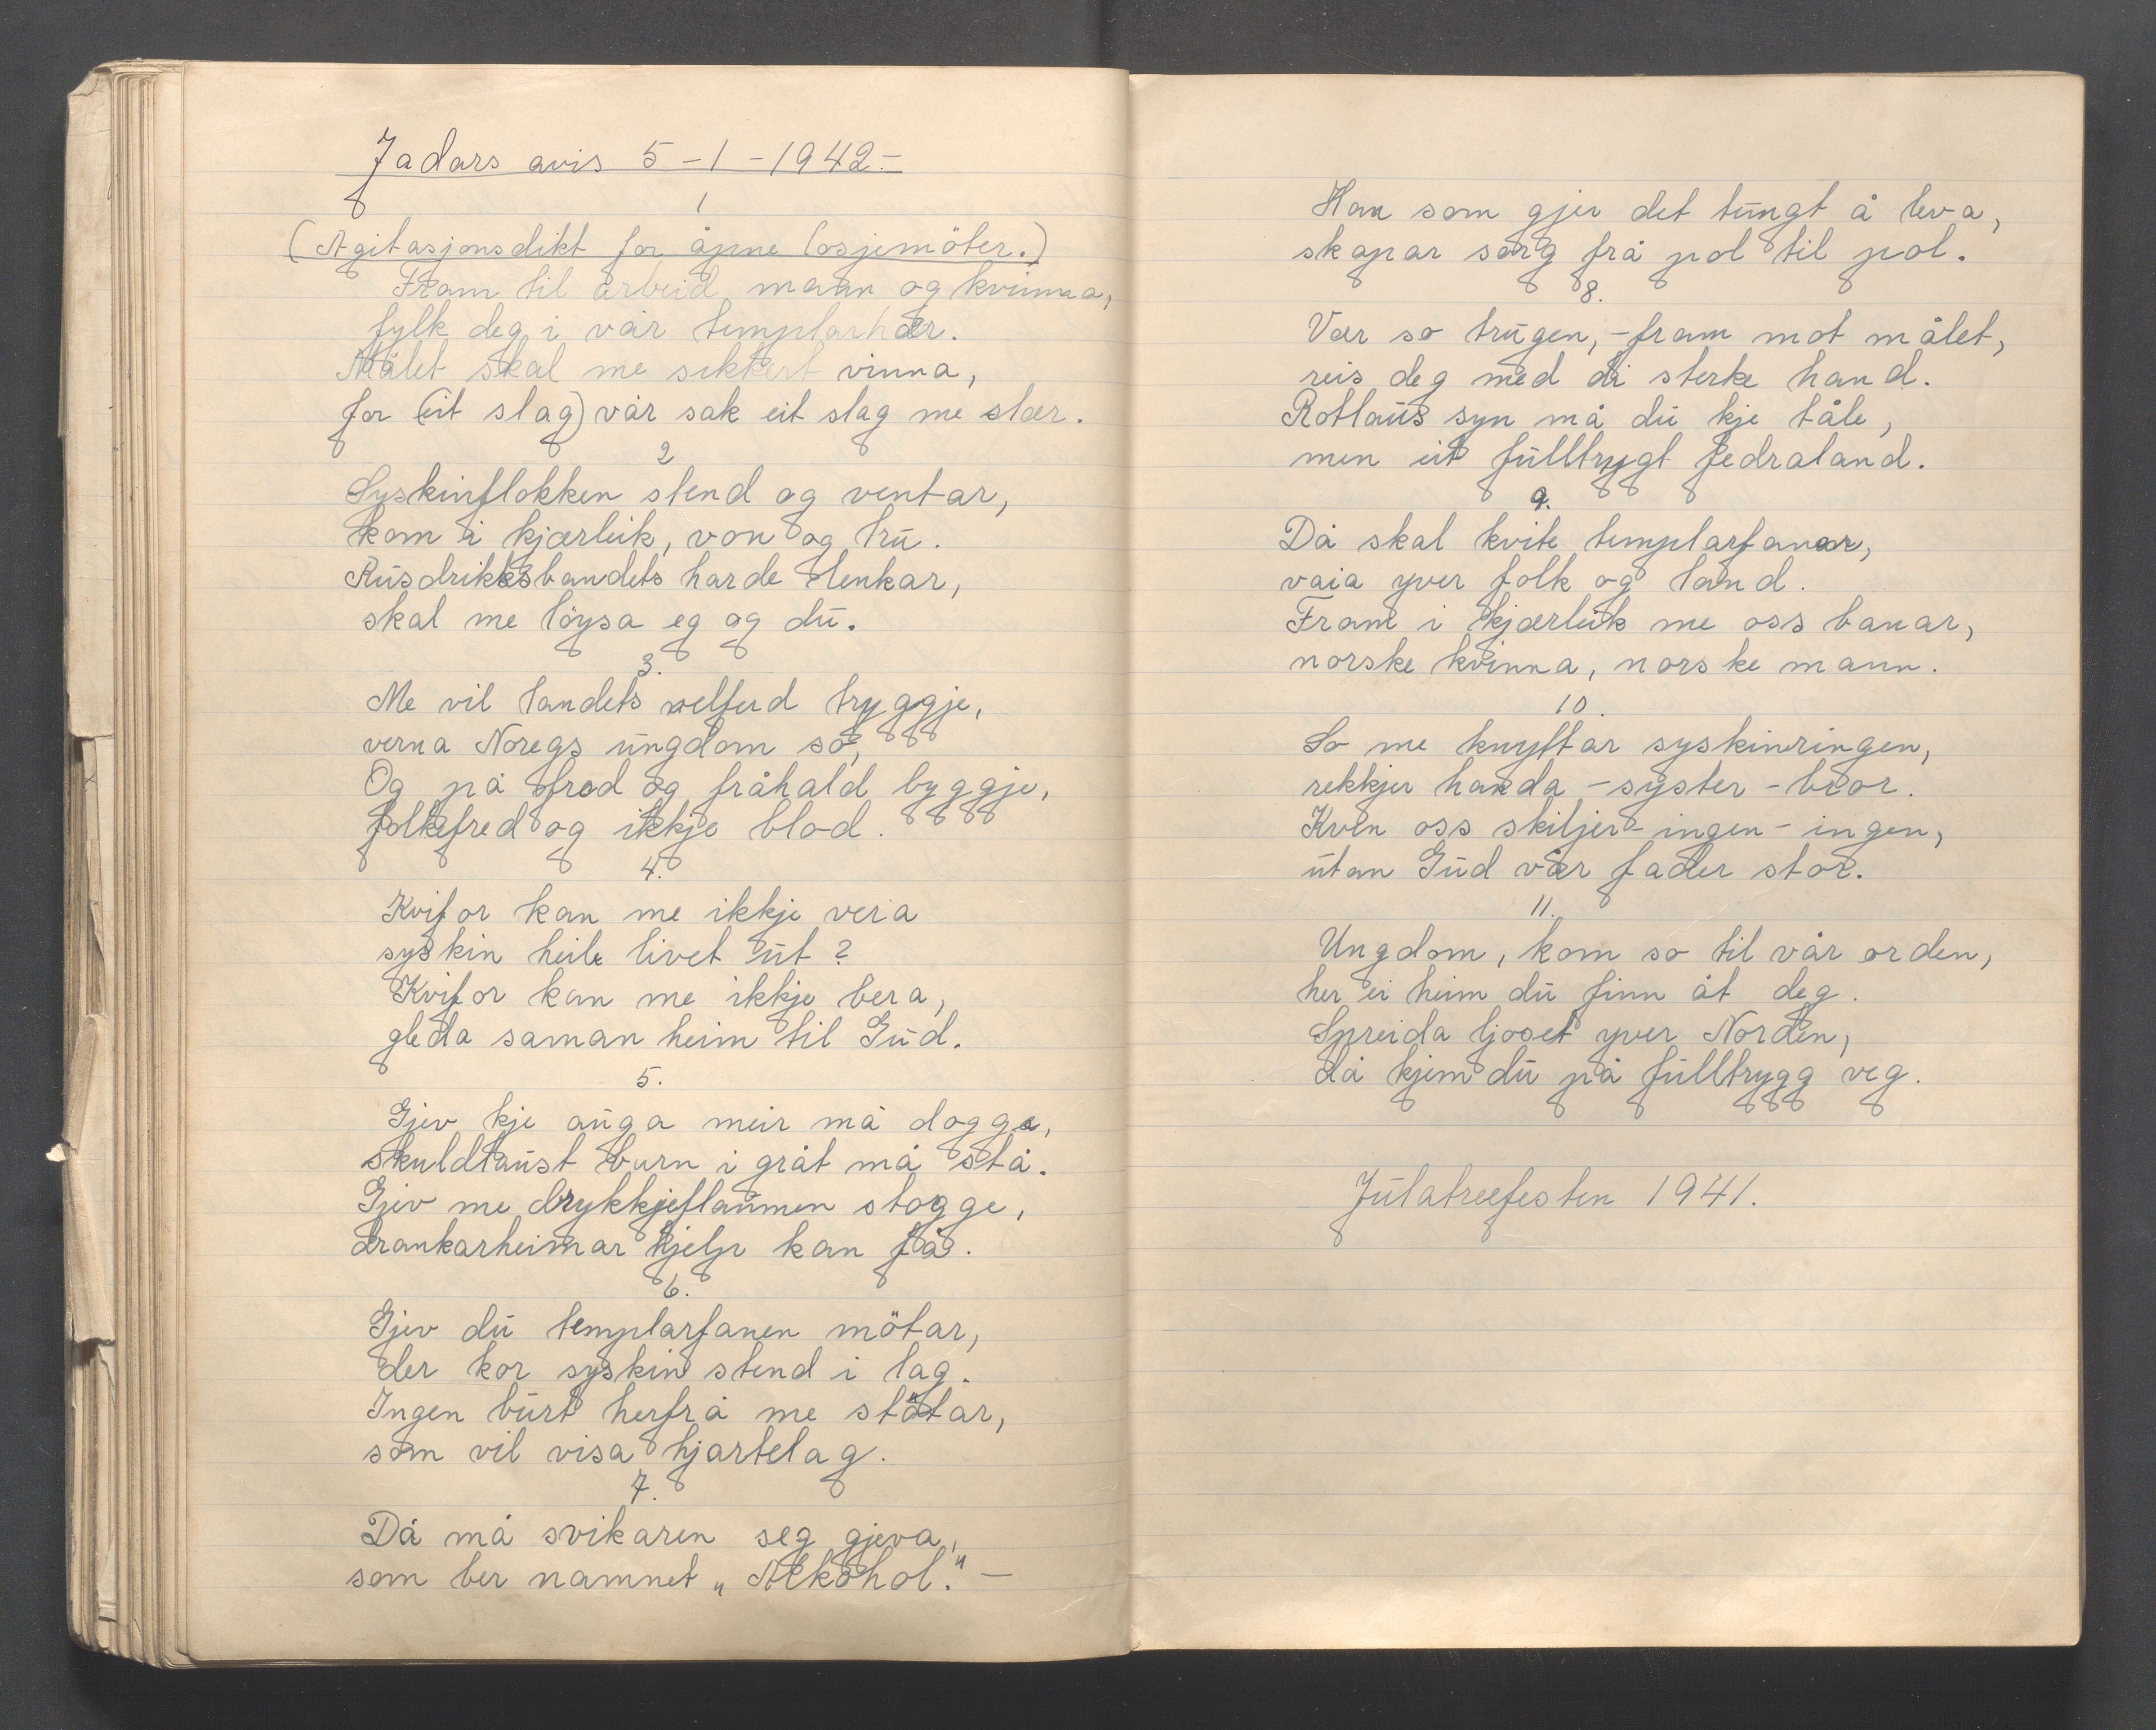 Jadars avis 5-1-1942.-
1
(Agitasjonsdikt for åpne losjemöter.)
Fram til arbeid mann og kvinna,
fylk deg i vår templarhær.
Målet skal me sikkert vinna,
for (eit slag) vår sak eit slag me slær.
2
Syskinflokken stend og ventar,
kom i kjærleik, von og tru.
Rusdrikksbandets harde lenkar,
skal me löysa eg og du.
3.
Me vil landets velferd tryggje,
verna Noregs ungdom so,
Og på fred og fråhald byggje,
folkefred og ikkje blod.
4.
Kvifor kan me ikkje vera
syskin heile livet ut?
Kvifor kan me ikkje bera,
gleda saman heim til Gud.
5.
Gjev kje auga meir må dogga,
skuldlaust burn i gråt må stå.
Gjev me drykkjeflaumen stogge,
drankarheimar hjelp kan få.
6.
Gjev du templarfanen mötar,
der kor syskin stend i lag.
Ingen burt herfrå me stötar,
som vil visa hjartelag.
7.
Då må svikaren seg gjeva,
som ber namnet „Alkohol." -
Han som gjer det tungt å leva,
skapar sorg frå pol til pol.
8.
Ver so trugen, - fram mot målet,
reis deg med di sterke hand.
Rotlaus syn må du kje tåle,
men eit fulltrygt fedraland.
9.
Då skal kvite templarfanar,
vaia yver folk og land.
Fram i kjærleik me oss banar,
norske kvinna, norske mann.
10.
So me knyttar syskinringen,
rekkjer handa - syster - bror.
Kven oss skiljer - ingen - ingen,
utan Gud vår fader stor.
11.
Ungdom, kom so til vår orden,
her ei heim du finn åt deg.
Spreida ljoset yver Norden,
då kjem du på fulltrygg veg.
Julatreefesten 1941.